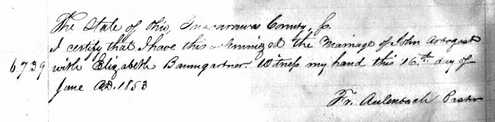 The State of Ohio, Tuscarawas County, Ss
I certify that I have this solemnized the Marriage of John Arbogast
6739 with Elizabeth Baumgartner. Witness my hand this 16th day of
June AD. 1853
Fr. Aulenbach Pastor